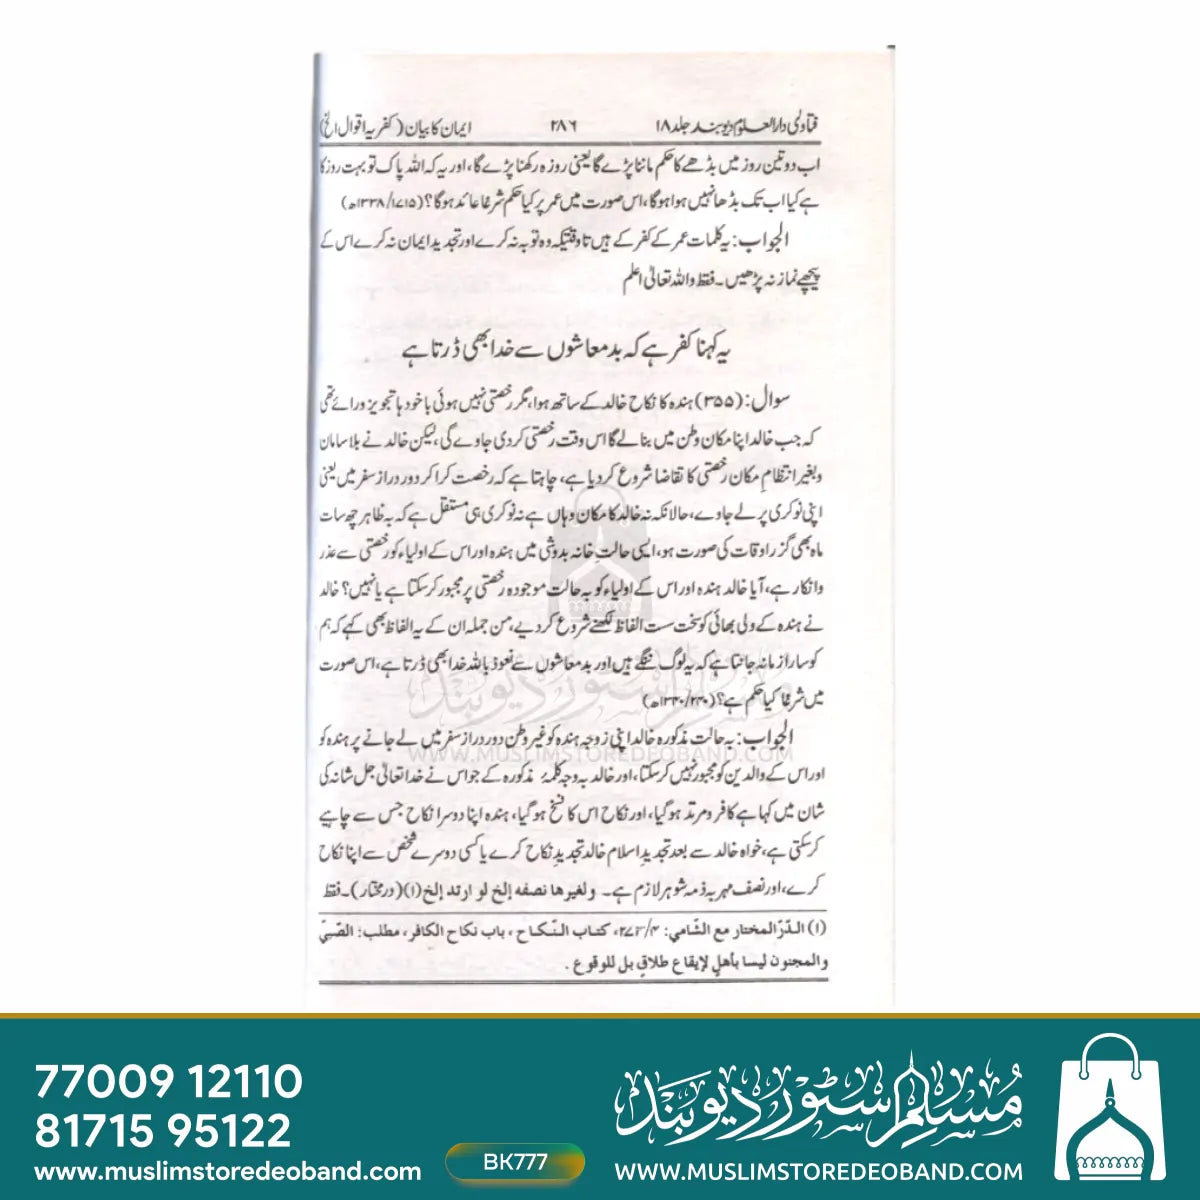 فتاویٰ دارالعلوم دیوبند جلد ۱۸ ۲۸۶ ایمان کا بیان (کفریہ اقوال الخ)
اب دو تین روز میں بڈھے کا حکم ماننا پڑے گا یعنی روزہ رکھنا پڑے گا، اور یہ کہ اللہ پاک تو بہت روز کا
ہے کیا اب تک بڈھا نہیں ہوا ہوگا، اس صورت میں عمر پر کیا حکم شرعًا عائد ہوگا؟ (۱۷۱۵/۱۳۳۸ھ)
الجواب: یہ کلمات عمر کے کفر کے ہیں تاوقتیکہ وہ توبہ نہ کرے اور تجدید ایمان نہ کرے اس کے
پیچھے نماز نہ پڑھیں۔ فقط واللہ تعالیٰ اعلم
یہ کہنا کفر ہے کہ بدمعاشوں سے خدا بھی ڈرتا ہے
سوال: (۳۵۵) ہندہ کا نکاح خالد کے ساتھ ہوا، مگر رخصتی نہیں ہوئی باخود ہا تجویز ورائے تھی
کہ جب خالد اپنا مکان وطن میں بنالے گا اس وقت رخصتی کردی جاوے گی، لیکن خالد نے بلا سامان
وبغیر انتظامِ مکان رخصتی کا تقاضا شروع کردیا ہے، چاہتا ہے کہ رخصت کرا کر دور دراز سفر میں یعنی
اپنی نوکری پر لے جاوے، حالانکہ نہ خالد کا مکان وہاں ہے نہ نوکری ہی مستقل ہے کہ بہ ظاہر چھ سات
ماہ بھی گزر اوقات کی صورت ہو، ایسی حالتِ خانہ بدوشی میں ہندہ اور اس کے اولیاء کو رخصتی سے عذر
وانکار ہے، آیا خالد ہندہ اور اس کے اولیاء کو بہ حالت موجودہ رخصتی پر مجبور کرسکتا ہے یا نہیں؟ خالد
نے ہندہ کے ولی بھائی کو سخت ست الفاظ لکھنے شروع کردیے، من جملہ ان کے یہ الفاظ بھی کہے کہ ہم
کو سارا زمانہ جانتا ہے کہ یہ لوگ ننگے ہیں اور بدمعاشوں سے نعوذ باللہ خدا بھی ڈرتا ہے، اس صورت
میں شرعًا کیا حکم ہے؟ (۲۳۰/۱۳۳۰ھ)
الجواب: بہ حالت مذکورہ خالد اپنی زوجہ ہندہ کو غیر وطن دور دراز سفر میں لے جانے پر ہندہ کو
اور اس کے والدین کو مجبور نہیں کرسکتا، اور خالد بہ وجہ کلمۂ مذکورہ کے جو اس نے خدا تعالیٰ جل شانہ کی
شان میں کہا ہے کافر ومرتد ہوگیا، اور نکاح اس کا فسخ ہوگیا، ہندہ اپنا دوسرا نکاح جس سے چاہے
کرسکتی ہے، خواہ خالد سے بعد تجدیدِ اسلام خالد تجدیدِ نکاح کرے یا کسی دوسرے شخص سے اپنا نکاح
کرے، اور نصف مہر بہ ذمہ شوہر لازم ہے۔ ولغيرها نصفه إلخ لو ارتد إلخ (۱) (درمختار)۔ فقط
(۱) الدّرّ المختار مع الشّامي: ۲۷۳/۴، كتاب النّكاح، باب نكاح الكافر، مطلب: الصّبيّ
والمجنون ليسا بأهلٍ لإيقاع طلاقٍ بل للوقوع.
مسلم سٹور دیوبند
WWW.MUSLIMSTOREDEOBAND.COM
77009 12110
81715 95122
www.muslimstoredeoband.com
BK777
مسلم سٹور دیوبند
WWW.MUSLIMSTOREDEOBAND.COM